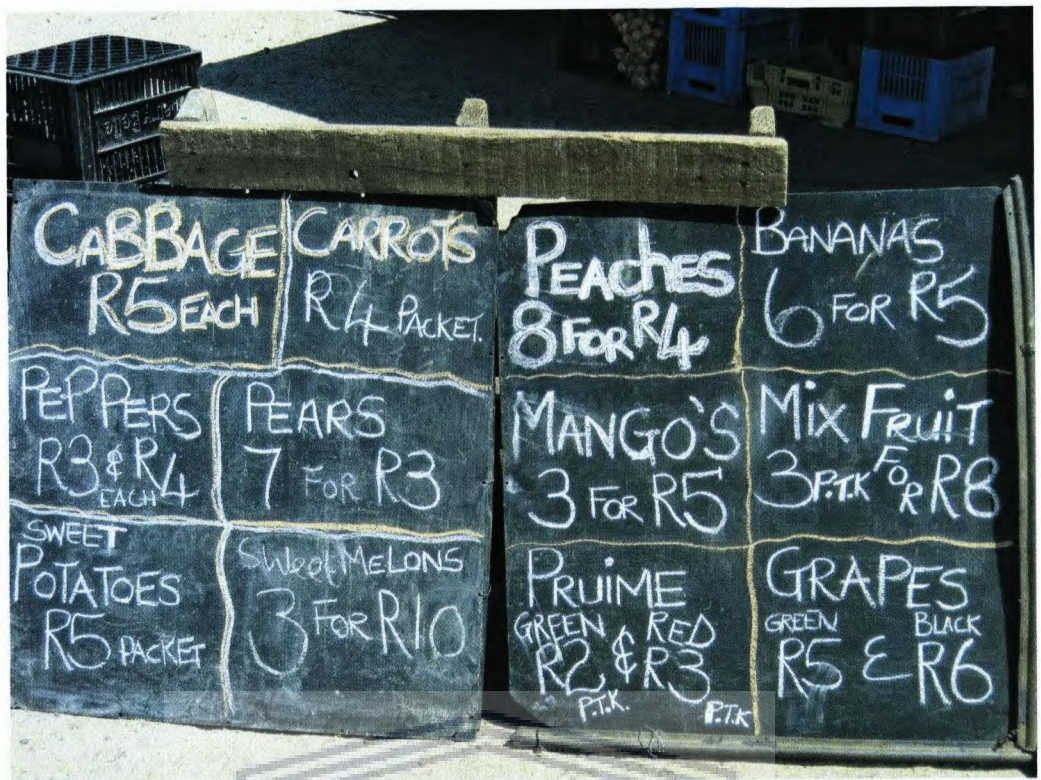 CABBAGE
R5 EACH
CARROTS
R4 PACKET.
PEPPERS
R3 & R4
EACH
PEARS
7 FOR R3
SWEET
POTATOES
R5 PACKET
Sweet MELONS
3 FOR R10
PEAChES
8 FOR R4
BANANAS
6 FOR R5
MANGO'S
3 FOR R5
MiX FRUiT
3 P.T.K FOR R8
PRUiME
GREEN RED
R2 & R3
P.T.K. P.T.K
GRAPES
GREEN BLACK
R5 & R6